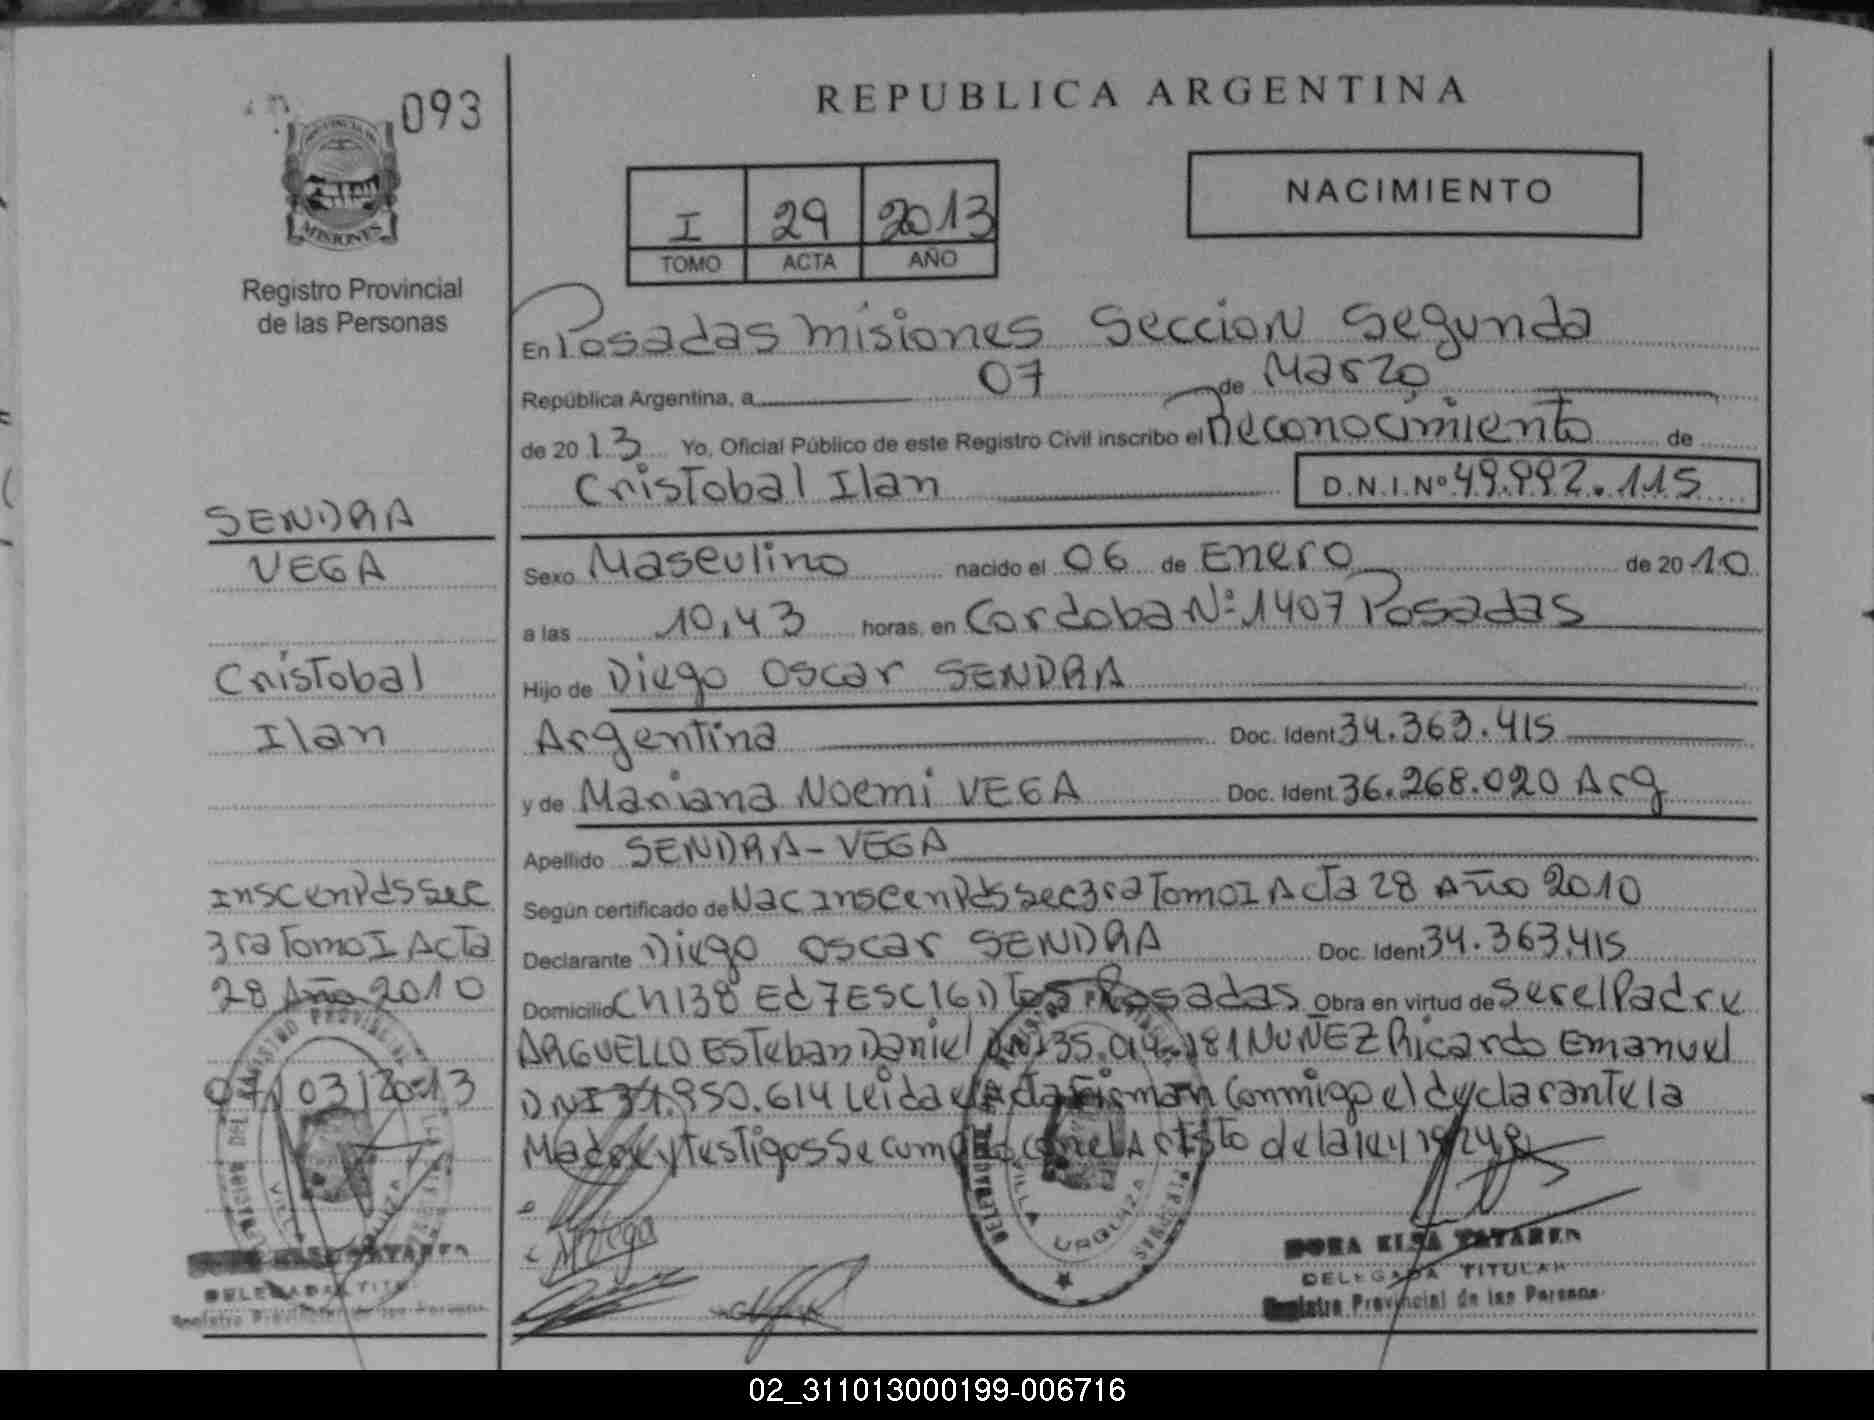 093
PROVINCIA DE
MISIONES
Registro Provincial
de las Personas
SENDRA
VEGA
Cristobal
Ilan
InscenPdsSec
3ra Tomo I Acta
28 Año 2010
07/03/2013
REPUBLICA ARGENTINA
I 29 2013
TOMO ACTA AÑO
NACIMIENTO
En Posadas Misiones Seccion Segunda
República Argentina, a 07 de Marzo
de 2013 Yo, Oficial Público de este Registro Civil inscribo el Reconocimiento de
Cristobal Ilan D.N.I.Nº 49.992.115
Sexo Masculino nacido el 06 de Enero de 2010
a las 10,43 horas, en Cordoba Nº 1407 Posadas
Hijo de Diego Oscar SENDRA
Argentina Doc. Ident 34.363.415
y de Mariana Noemi VEGA Doc. Ident 36.268.020 Arg
Apellido SENDRA-VEGA
Según certificado de Nac InscenPds Sec 3ra Tomo I Acta 28 Año 2010
Declarante Diego Oscar SENDRA Doc. Ident 34.363.415
Domicilio CH138 Ed 7 ESC 16 Posadas Obra en virtud de Ser el Padre
ARGUELLO Esteban Daniel DNI 35. 181 NUÑEZ Ricardo Emanuel
DNI .950.614 Leida el Acta Firman Conmigo el declarante la
Madre y testigos Se cumplio con el Art de la ley
Mvega
REGISTRO PROVINCIAL
VILLA URQUIZA
VILLA URQUIZA
DORA ELSA TATAREN
DELEGADA TITULAR
Registro Provincial de las Personas
DELEGADA TIT
Registro Provincial de las Personas
02_311013000199-006716